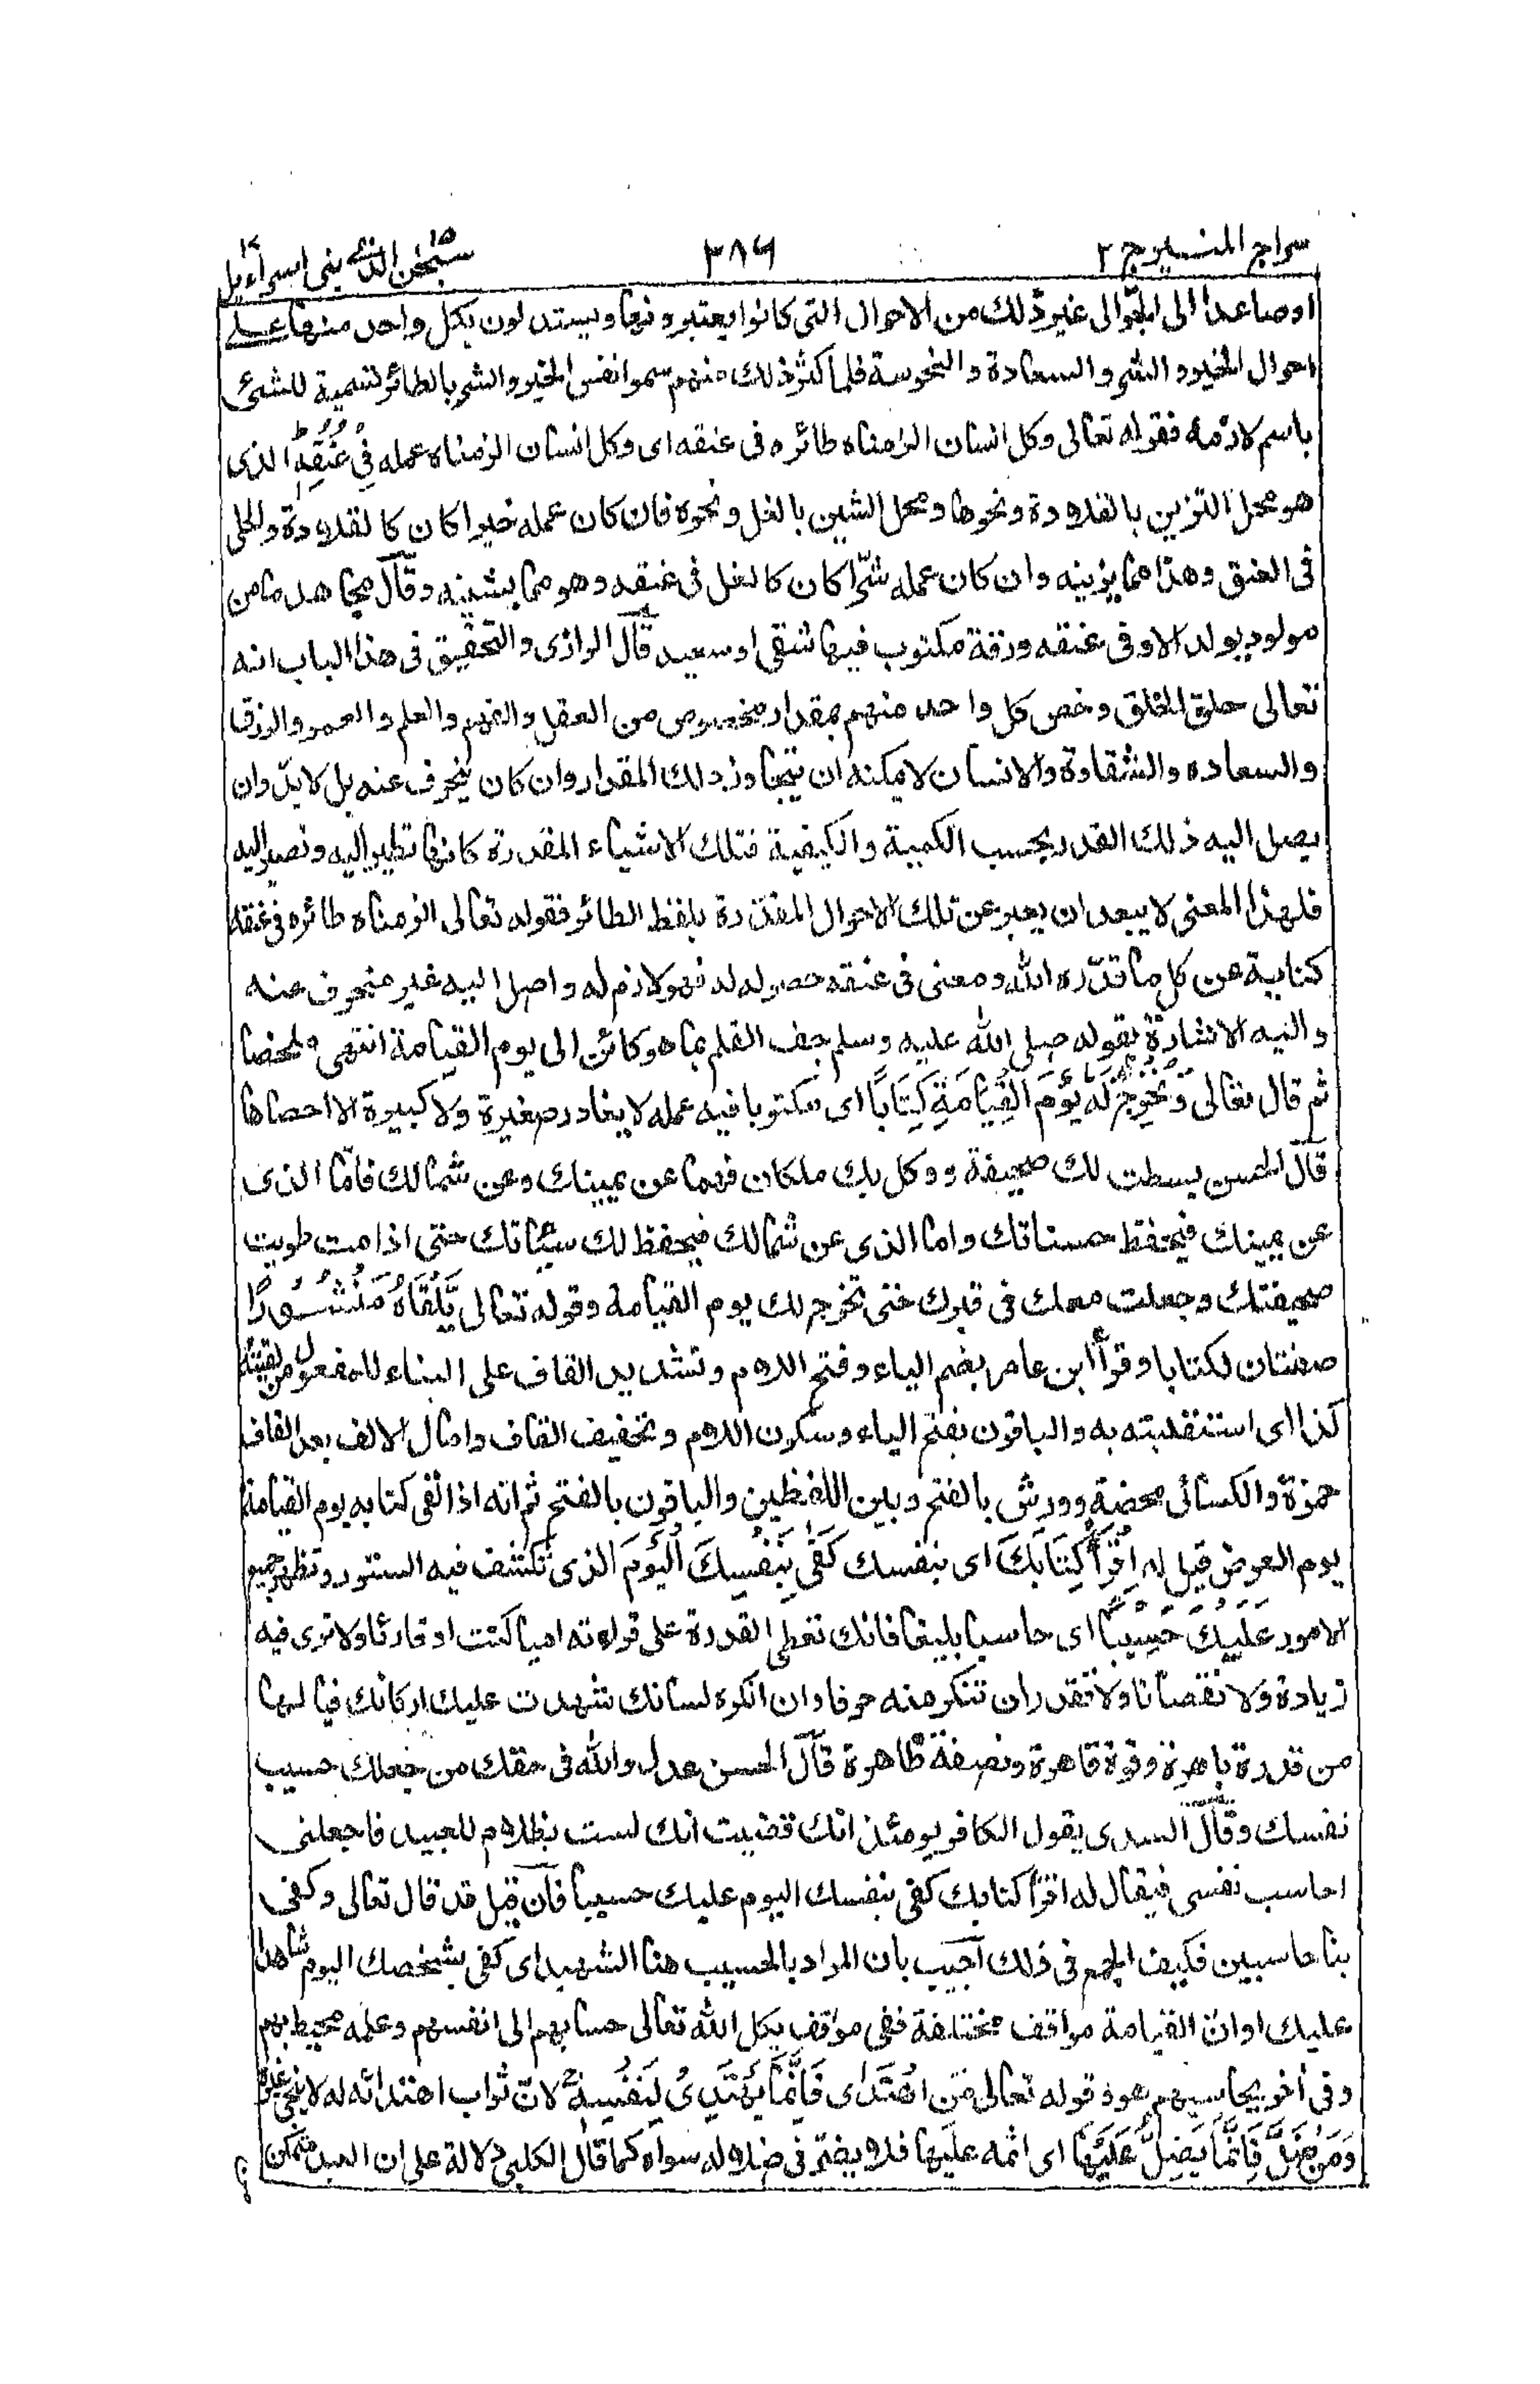 سراج المنير ج ٢
٣٨٦
سبحن الذى ١٥ بنى اسرآءيل ١٧
اوصاعدا الى الجوّ الى غير ذلك من الاحوال التى كانوا يعتبرونها ويستدلون بكل واحد منها على
احوال الخير و الشر و السعادة و النحوسة فلما كثر ذلك منهم سموا نفس الخير والشر بالطائر تسمية للشئ
باسم لازمه فقوله تعالى وكل انسان الزمناه طائره فى عنقه اى وكل انسان الزمناه عمله فِىْ عُنُقِهٖ ط الذى
هو محل التزين بالقلادة ونحوها ومحل الشين بالغل ونحوه فان كان عمله خيرا كان كالقلادة والحلى
فى العنق وهذا مما يزينه وان كان عمله شرّا كان كالغل فى عنقه وهو مما يشينه وقال مجاهد مامن
مولود يولد الاوفى عنقه ورقة مكتوب فيها شقى اوسعيد قال الرازى والتحقيق فى هذا الباب انه
تعالى خلق الخلق وخص كل واحد منهم بمقدار مخصوص من العقل والفهم والعلم والعمر والرزق
والسعاده والشقاوة والانسان لا يمكنه ان يتجاوز ذلك المقدار وان كان ينحرف عنه بل لابدّ وان
يصل اليه ذلك القدر بحسب الكمية والكيفية فتلك الاشياء المقدرة كانها تطير اليه وتصير اليه
فلهذا المعنى لا يبعد ان يعبر عن تلك الاحوال المقدرة بلفظ الطائر فقوله تعالى الزمناه طائره فى عنقه
كناية عن كل ما قدّره الله ومعنى فى عنقه حصوله له فهو لازم له واصل اليه غير منحرف عنه
واليه الاشارة بقوله صلى الله عليه وسلم جف القلم بما هو كائن الى يوم القيامة انتهى ملخصا
ثم قال تعالى وَنُخْرِجُ لَهٗ يَوْمَ الْقِيَامَةِ كِتَابًا اى مكتوبا فيه عمله لا يغادر صغيرة ولا كبيرة الا احصاها
قال الحسن بسطت لك صحيفة ووكل بك ملكان فهما عن يمينك وعن شمالك فامّا الذى
عن يمينك فيحفظ حسناتك واما الذى عن شمالك فيحفظ لك سيّئاتك حتى اذا مت طويت
صحيفتك وجعلت معك فى قبرك حتى تخرج لك يوم القيامة وقوله تعالى يَّلْقَاهُ مَنْشُوْرًا
صفتان لكتابا وقرأ ابن عامر بضم الياء وفتح اللام وتشديد القاف على البناء للمفعول من لقيته
كذا اى استقبلته به والباقون بفتح الياء وسكون اللام وتخفيف القاف وامال الالف بعد القاف
حمزة والكسائى محضة وورش بالفتح وبين اللفظين والباقون بالفتح ثم انه اذا لقى كتابه يوم القيامة
يوم العرض قيل له اِقْرَأْ كِتَابَكَ اى بنفسك كَفٰى بِنَفْسِكَ الْيَوْمَ الذى تكشف فيه الستور وتظهر جميع
الامور عَلَيْكَ حَسِيْبًا اى حاسبا بليغا فانك تعطى القدرة على قراءته اميا كنت او قارئا ولا ترى فيه
زيادة ولا نقصانا ولا تقدر ان تنكر منه حرفا وان انكره لسانك شهدت عليك اركانك فيا لها
من قدرة باهرة وقوة قاهرة ونصفة ظاهرة قال الحسن عدل والله فى حقك من جعلك حسيب
نفسك وقال السدى يقول الكافر يومئذ انك قضيت انك لست بظلام للعبيد فاجعلنى
احاسب نفسى فيقال له اقرأ كتابك كفى بنفسك اليوم عليك حسيبا فان قيل قد قال تعالى وكفى
بنا حاسبين فكيف الجمع فى ذلك اجيب بان المراد بالحسيب هنا الشهيد اى كفى بشخصك اليوم شاهدا
عليك اوان القيامة مواقف مختلفة ففى مواقف يكل الله تعالى حسابهم الى انفسهم وعلمه محيط بهم
وفى أخر يحاسبهم هو وقوله تعالى مَنِ اهْتَدٰى فَاِنَّمَا يَهْتَدِىْ لِنَفْسِهٖ ج لانّ ثواب اهتدائه له لا ينجى غيره
وَمَنْ ضَلَّ فَاِنَّمَا يَضِلُّ عَلَيْهَا اى اثمه عليها فلا يضرّ فى ضلاله سواه كما قال الكلبى دلالة على ان العبد متمكن